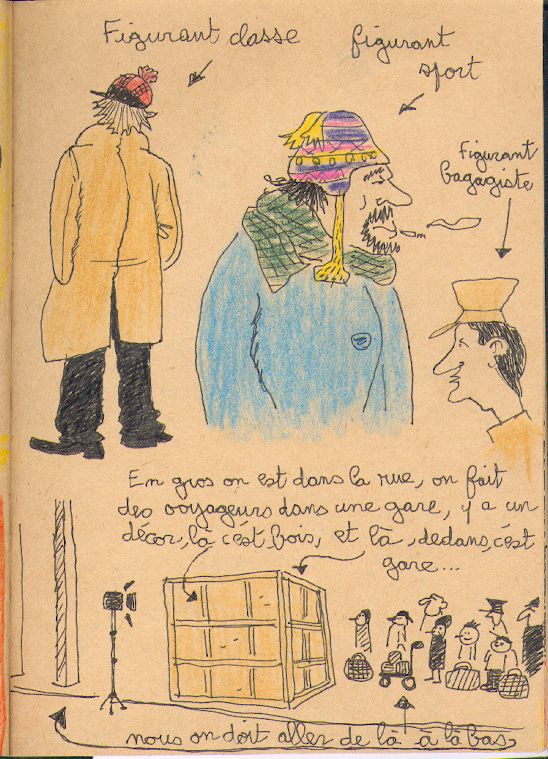 Figurant classe
figurant
sport
Figurant
bagagiste
En gros on est dans la rue, on fait
des voyageurs dans une gare, y a un
décor, là c'est bois, et là, dedans, c'est
gare...
nous on doit aller de là à là bas